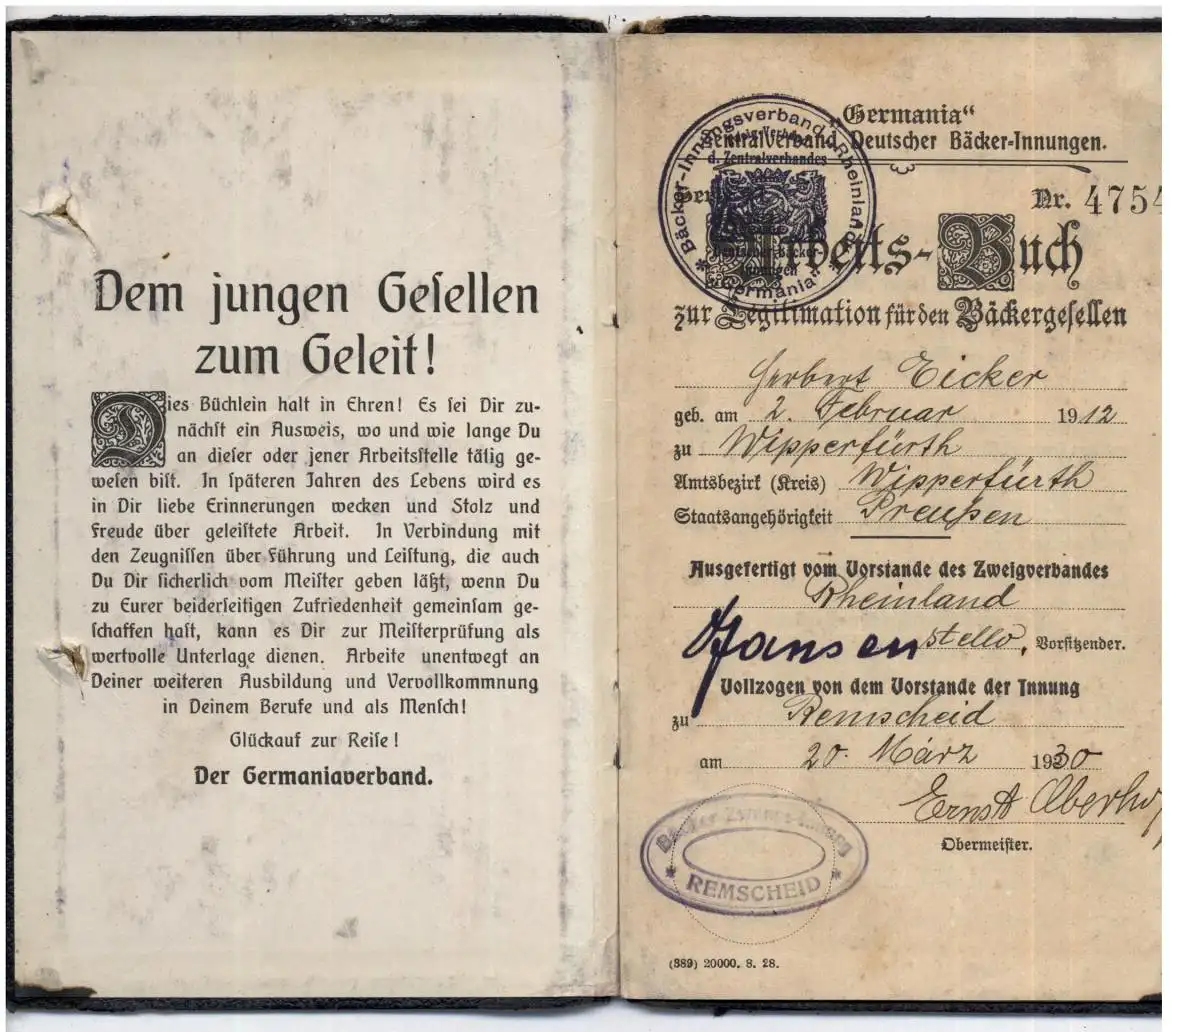 Dem jungen Gesellen
zum Geleit!
Dies Büchlein halt in Ehren! Es sei Dir zu-
nächst ein Ausweis, wo und wie lange Du
an dieser oder jener Arbeitsstelle tätig ge-
wesen bist. In späteren Jahren des Lebens wird es
in Dir liebe Erinnerungen wecken und Stolz und
Freude über geleistete Arbeit. In Verbindung mit
den Zeugnissen über Führung und Leistung, die auch
Du Dir sicherlich vom Meister geben läßt, wenn Du
zu Eurer beiderseitigen Zufriedenheit gemeinsam ge-
schaffen hast, kann es Dir zur Meisterprüfung als
wertvolle Unterlage dienen. Arbeite unentwegt an
Deiner weiteren Ausbildung und Vervollkommnung
in Deinem Berufe und als Mensch!
Glückauf zur Reise!
Der Germaniaverband.
„Germania“
Zentralverband Deutscher Bäcker-Innungen.
Bäcker-Innungsverband Rheinland
Zweig-Verband
d. Zentralverbandes
Deutscher Bäcker-
Innungen
"Germania"
Nr. 4754
Arbeits-Buch
zur Legitimation für den Bäckergesellen
Herbert Eicker
geb. am 2. Februar 1912
zu Wipperfürth
Amtsbezirk (Kreis) Wipperfürth
Staatsangehörigkeit Preußen
Ausgefertigt vom Vorstande des Zweigverbandes
Rheinland
Jansen stello, Vorsitzender.
Vollzogen von dem Vorstande der Innung
zu Remscheid
am 20. März 1930
Ernst
Obermeister.
Bäcker-Zwangs-Innung
* REMSCHEID *
(389) 20000. 8. 28.